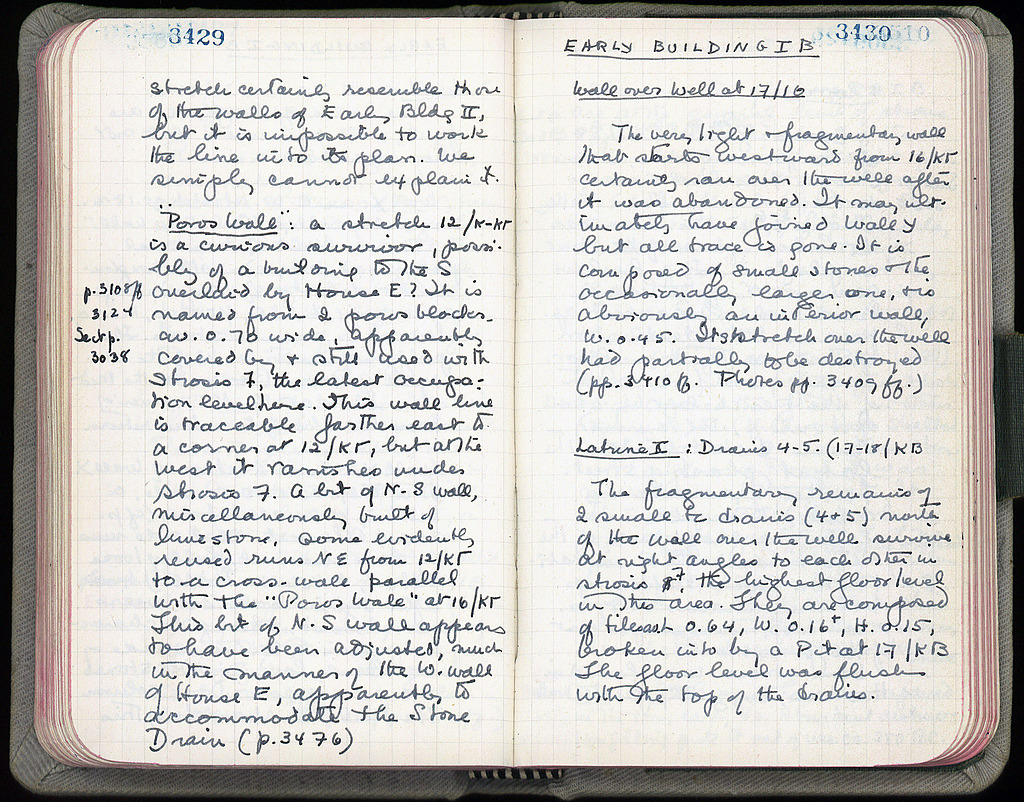 3429
stretch certainly resemble those
of the walls of Early Bldg II,
but it is impossible to work
the line into its plan. We
simply cannot explain it.
"Poros Wall": a stretch 12/K-KΓ
is a curious survivor, possi-
bly of a building to the S
p.3108ff overlaid by House E? It is
3124 named from 2 poros blocks
Sect p. av. 0.70 wide, apparently
3038 covered by + still used with
strosis 7, the latest occupa-
tion level here. This wall line
is traceable farther east to
a corner at 12/KΓ, but at the
west it vanishes under
strosis 7. A bit of N-S wall,
miscellaneously built of
limestone, some evidently
reused runs NE from 12/KΓ
to a cross-wall parallel
with the "Poros Wall" at 16/KΓ
This bit of N-S wall appears
to have been adjusted, much
in the manner of the W. wall
of House E, apparently to
accommodate the Stone
Drain (p.3476)
3430
EARLY BUILDING I B
Wall over Well at 17/16
The very light + fragmentary wall
that starts westward from 16/KΓ
certainly ran over the well after
it was abandoned. It may ult-
imately have joined Wall Y
but all trace is gone. It is
composed of small stones + the
occasionally larger one, + is
obviously an interior wall,
W. 0.45. Its stretch over the well
had partially to be destroyed
(pp. 3410ff. Photos pp. 3409ff.)
Latrine II : Drains 4-5. (17-18/KB
The fragmentary remains of
2 small tc drains (4+5) north
of the wall over the well survive
at right angles to each other in
strosis 7, the highest floor level
in this area. They are composed
of tiles 0.64, W. 0.16+, H. 0.15,
broken into by a Pit at 17/KB
The floor level was flush
with the top of the drains.